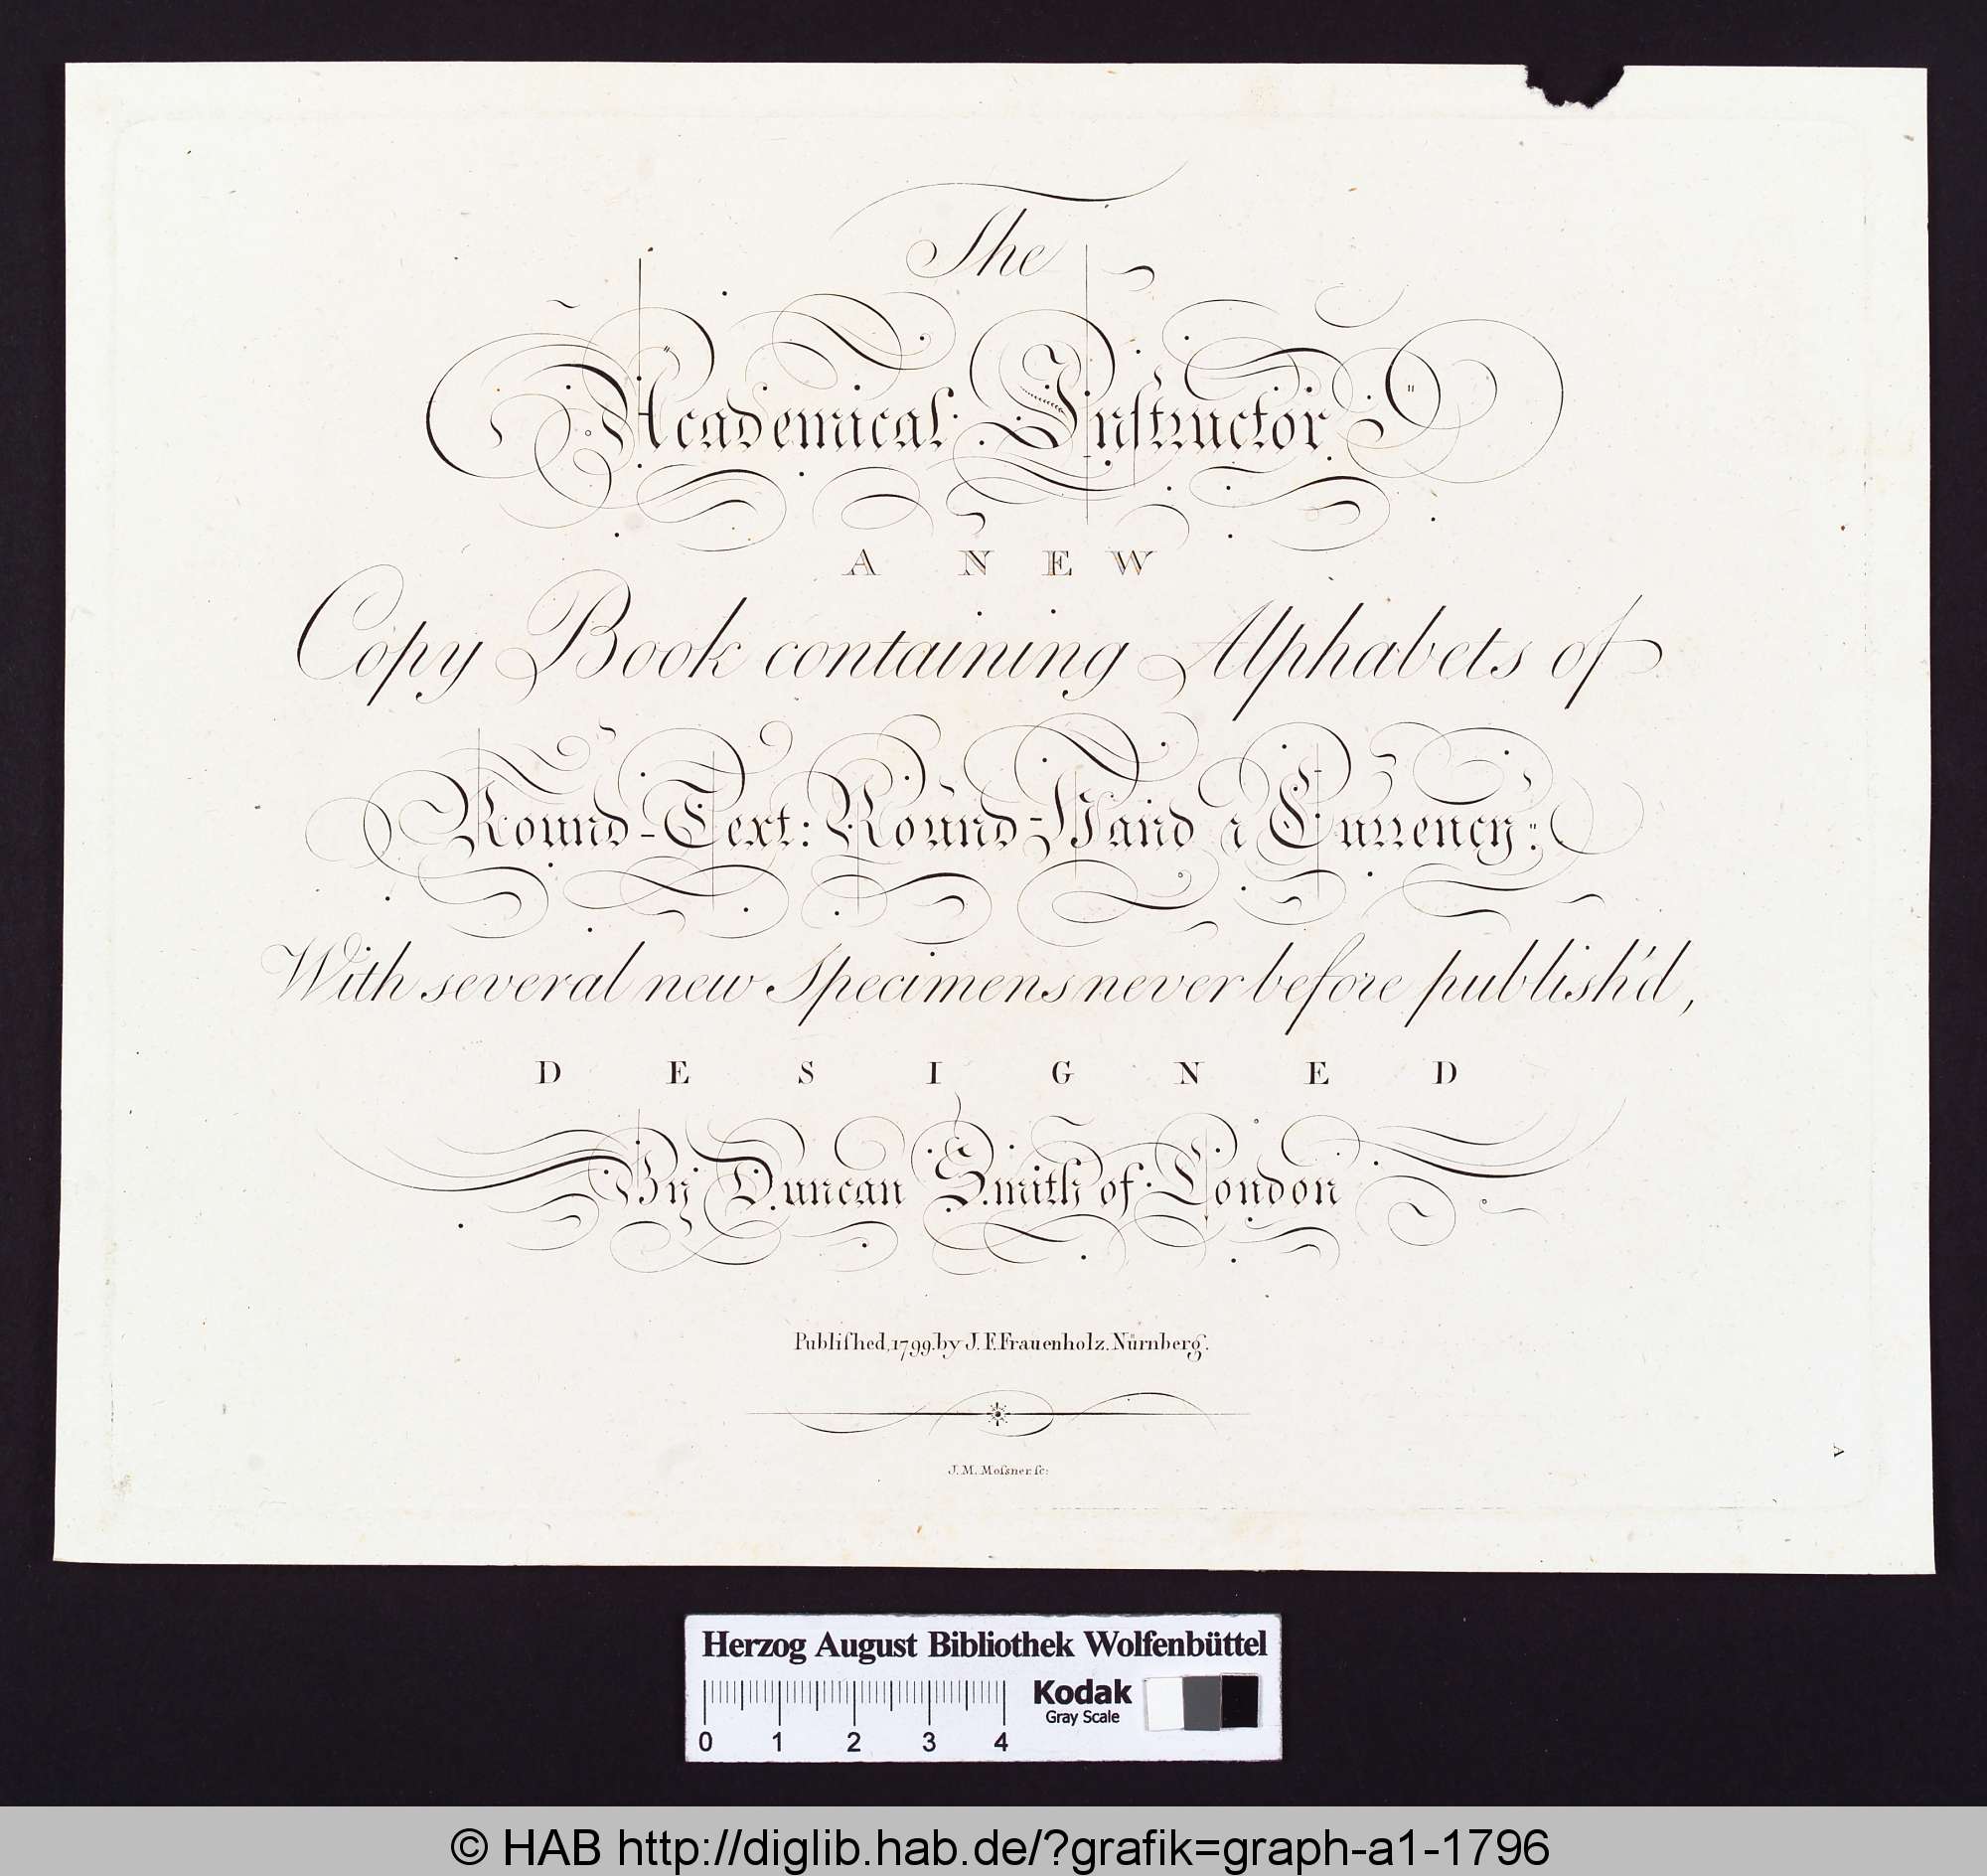 The
Academical Inſtructor
A NEW
Copy Book containing Alphabets of
Round-Text: Round-Hand & Currency:
With several new Specimens never before publish'd,
DESIGNED
By Duncan Smith of London
Publiſhed, 1799. by J. F. Frauenholz. Nůrnberg.
J. M. Moſsner. ſc:
A
Herzog August Bibliothek Wolfenbüttel
0 1 2 3 4
Kodak
Gray Scale
© HAB http://diglib.hab.de/?grafik=graph-a1-1796